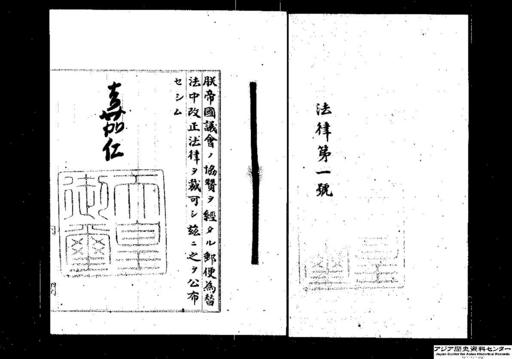 法律第一號
朕帝國議會ノ協贊ヲ經タル郵便為替
法中改正法律ヲ裁可シ茲ニ之ヲ公布
セシム
嘉仁
天皇
御璽
アジア歴史資料センター
Japan Center for Asian Historical Records